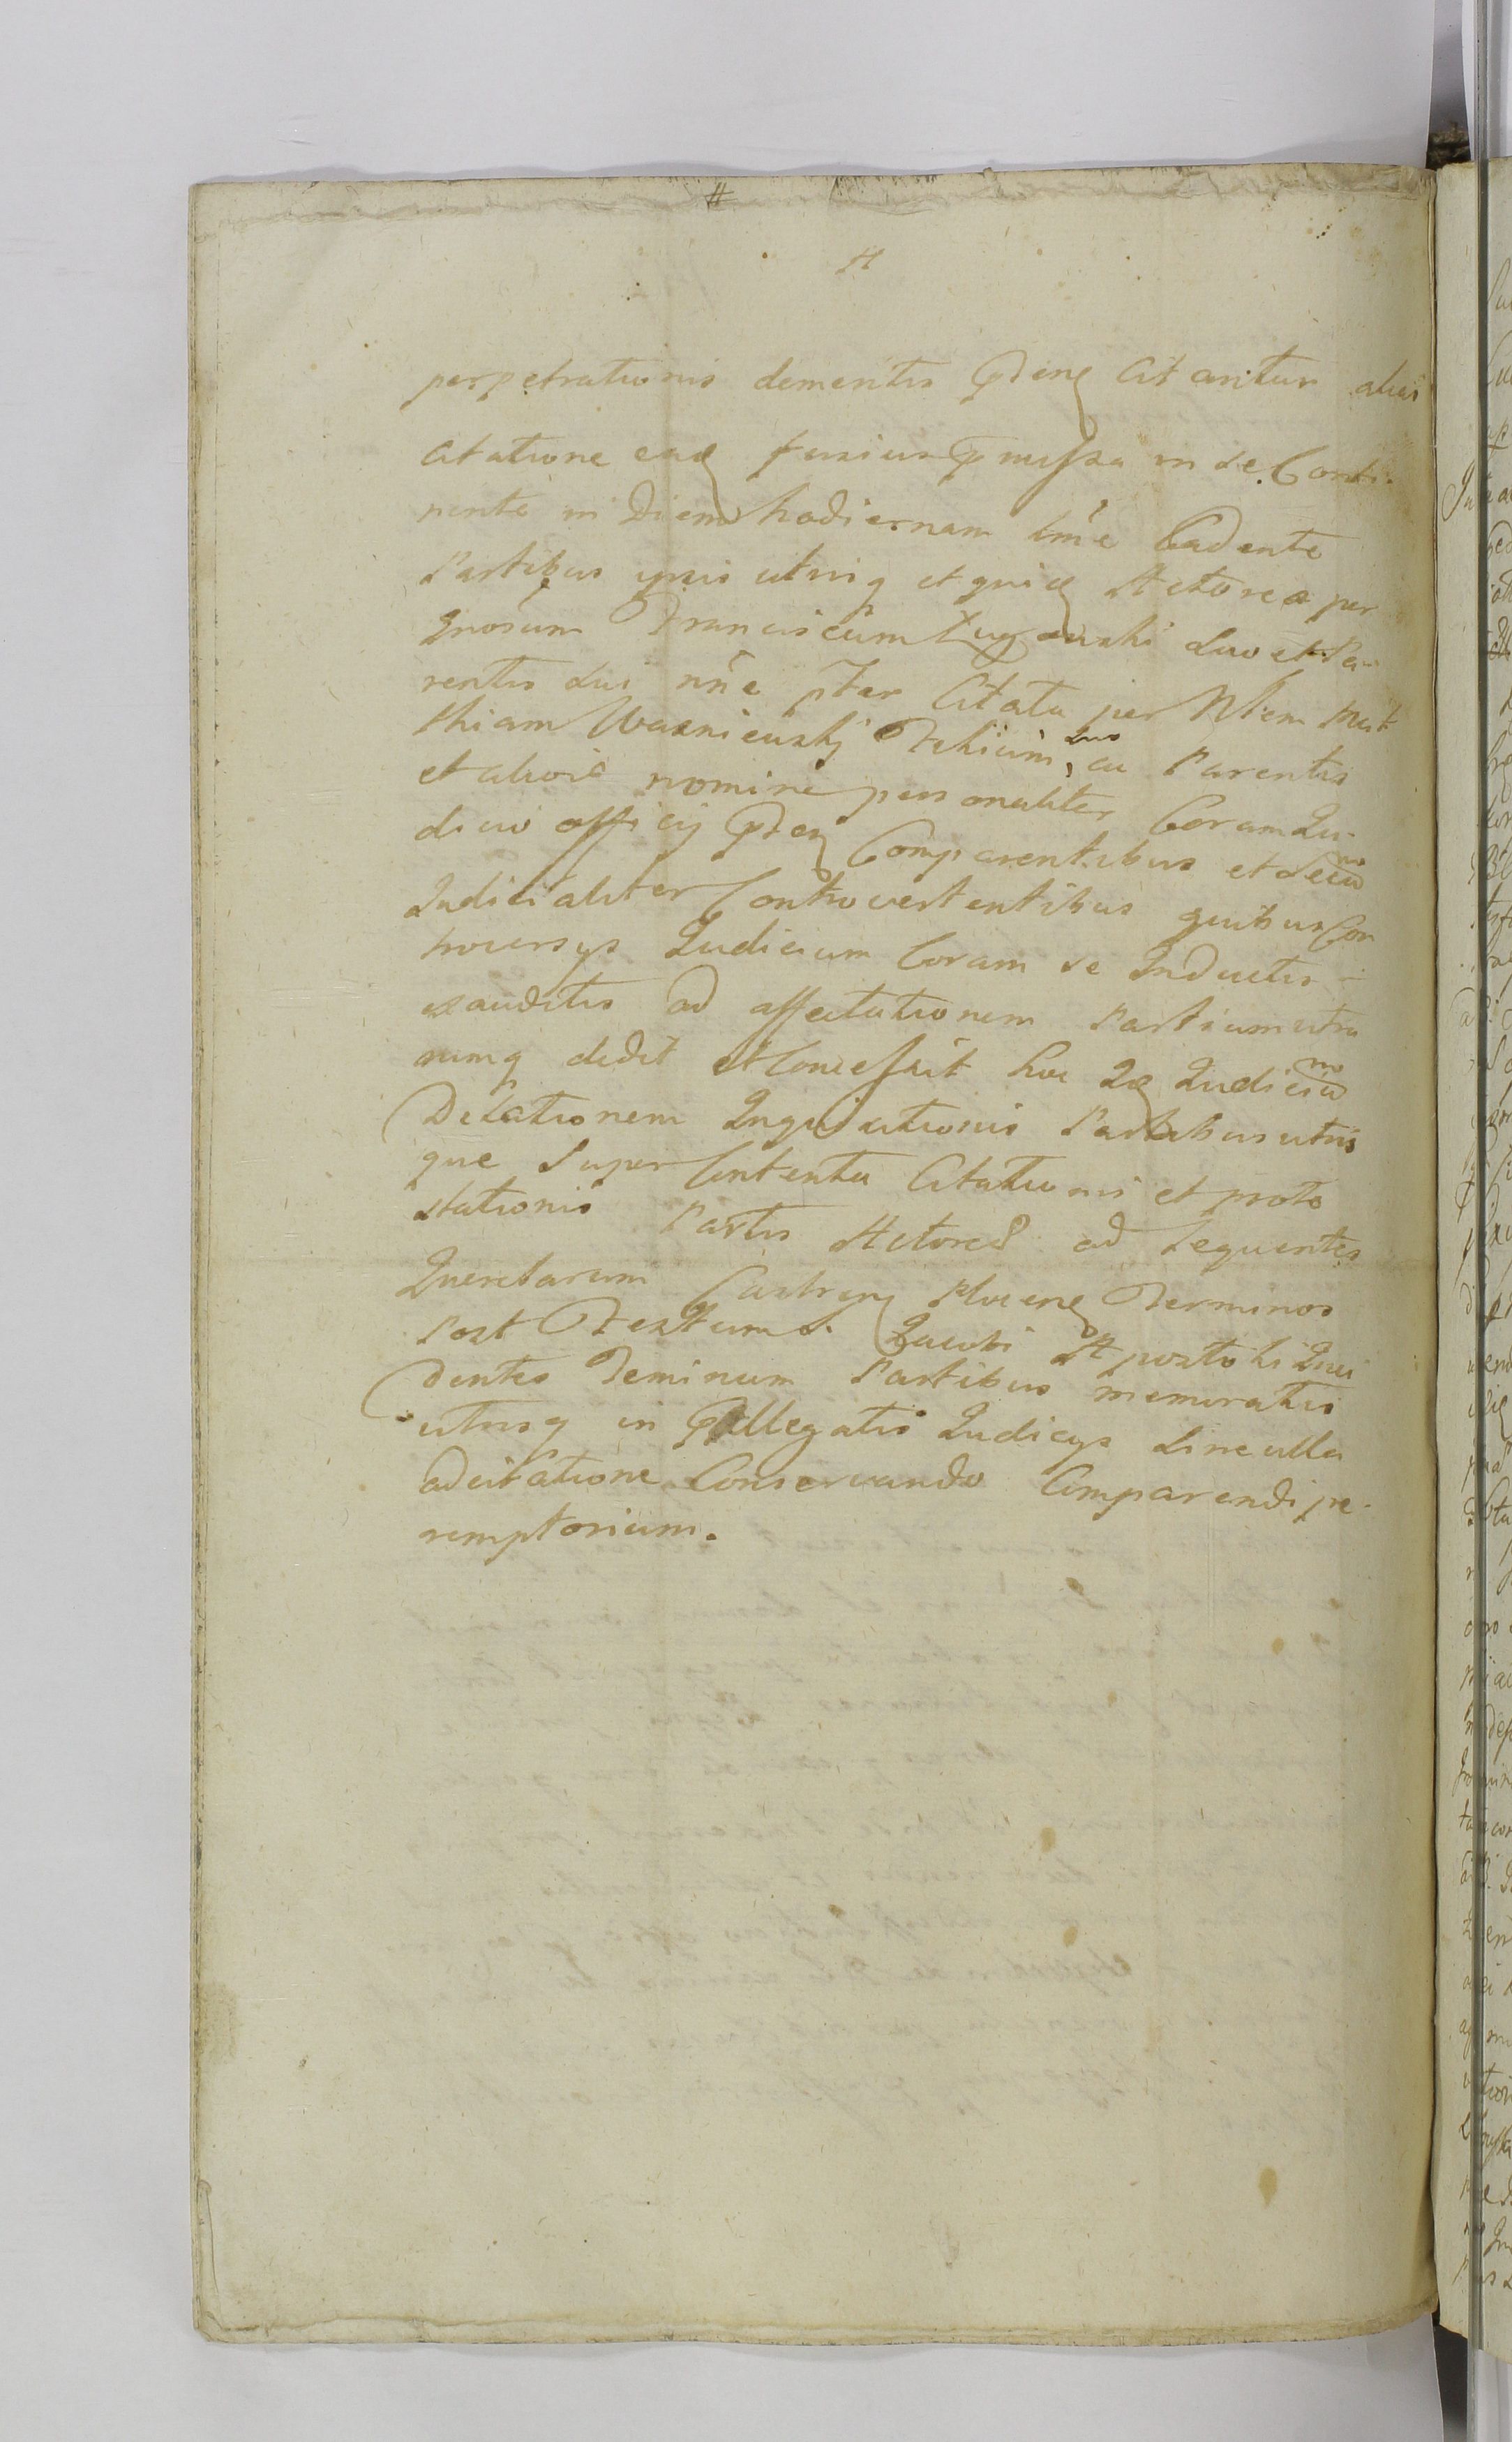 perpetrationis dementis Citantur alias
Citatione eadę fusius in se Conti-
nente in Diem hodiernam lme Cadente
Partibus ipsis utrisq et quidę Actorea per
Gnosum Franciscum suo et Pa-
rentis sui nne pter Citata per Nblem Mat
thiam Wasniewskj suo ac Parentis
et aliorū nomine personaliter Coram Ju-
dicio officij Comparentibus et Secū
Judicialiter Controvertentibus quibus Con
troversys Judicium Coram se Inductis -
exauditis ad affectationem Partium utra
rumq dedit et Concessit hoc Idę Judiciū
Delationem Inquisitionis Partibus utris
que Super Contenta Citationis et prote
stationis Partis Actoreæ ad Sequentes
Querelarum Castren Plocen Terminos
Post Festum S. Jacobi Apostoli Inci
dentes Terminum Partibus memoratis
utrisq in Allegatis Judicys Sine ulla
adcitatione Conservando Comparendi pe-
remptorium.